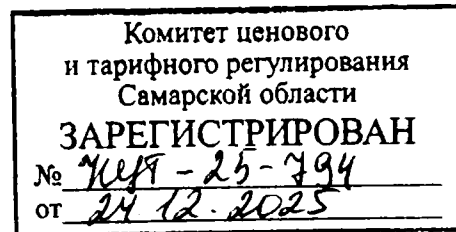 Комитет ценового
и тарифного регулирования
Самарской области
ЗАРЕГИСТРИРОВАН
№ - 25 - 794
от 24 12. 2025